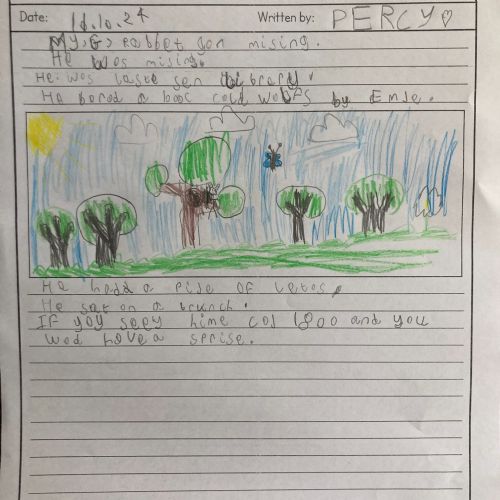 Date: 18.10.24 Written by: PERCY♡
My,G, rabbet gon mising.
He wos mising.
He wos laste sen library.
He bored a booc cold wolfs by Emle.
He hadd a pise of letos,
He sat on a brunch.
IF you seey hime col 1800 and you
wod have a sprise.